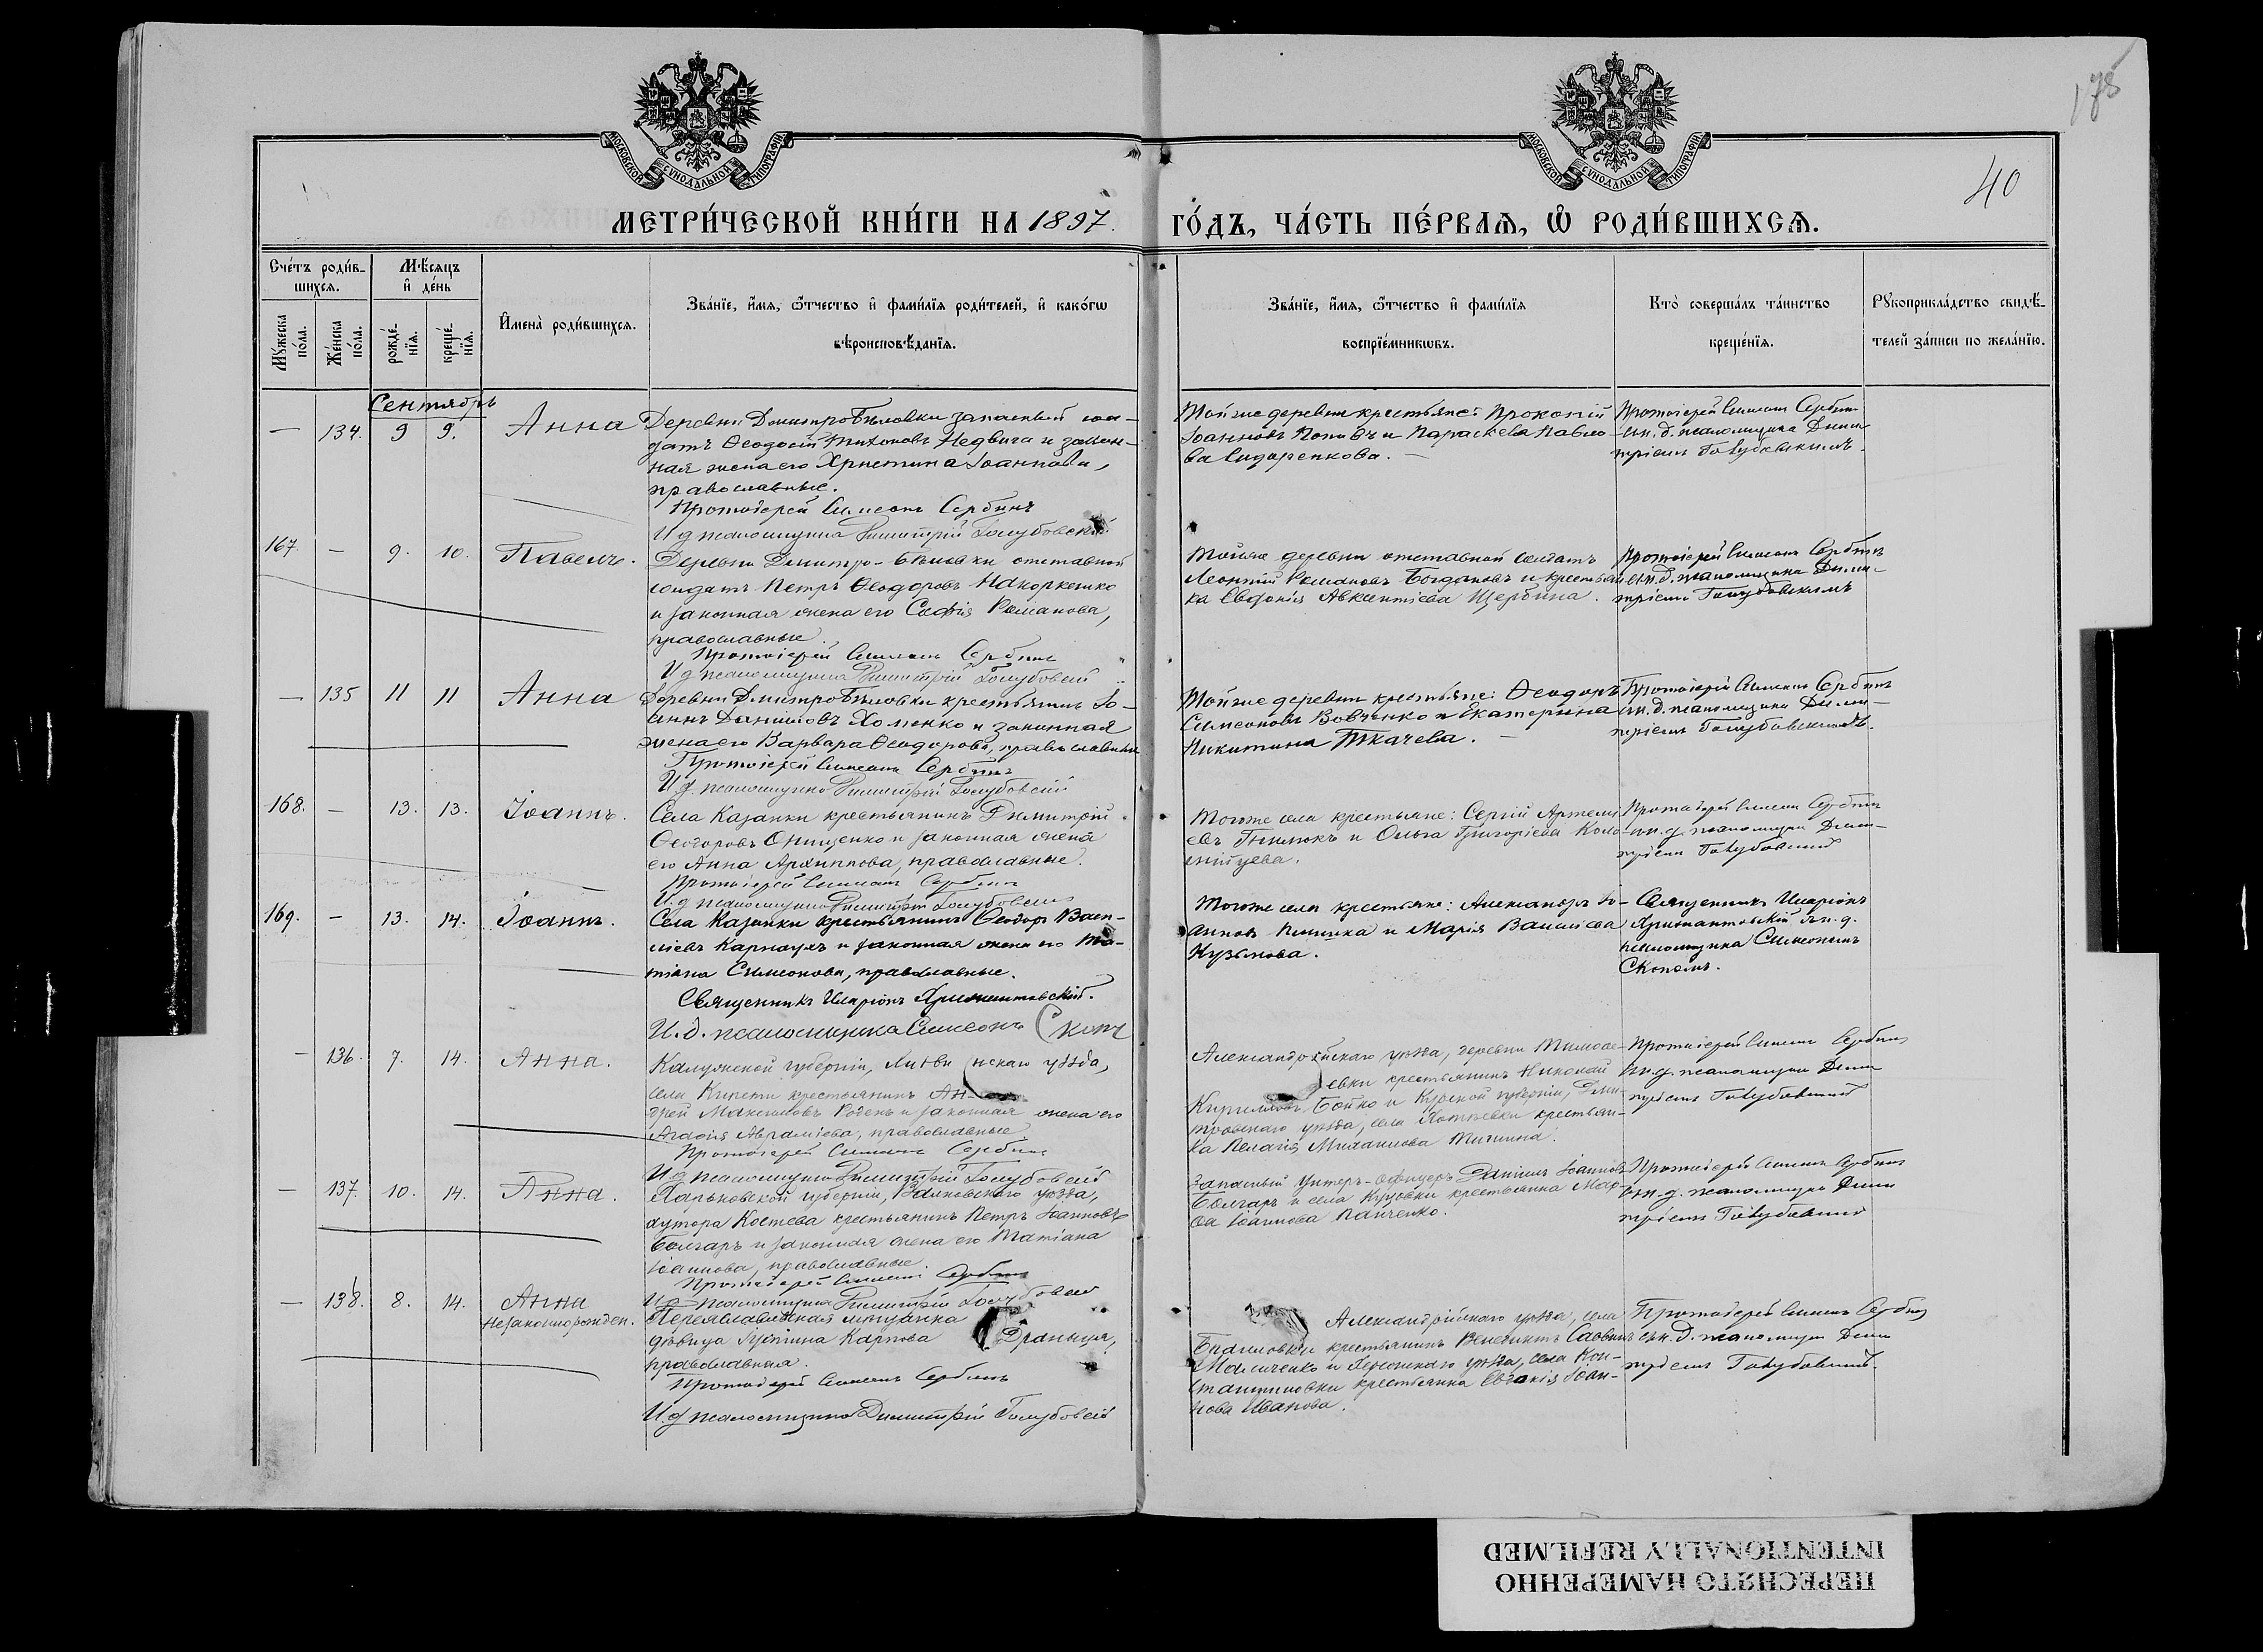 178
40
МОСКОВСКОЙ СУНОДАЛЬНОЙ ТИПОГРАФІИ
МОСКОВСКОЙ СУНОДАЛЬНОЙ ТИПОГРАФІИ
МЕТРИ́ЧЕСКОЙ КНИ́ГИ НА 1897. ГО́ДЪ, ЧА́СТЬ ПЕ́РВАѦ, Ѡ҆ РОДИ́ВШИХСѦ.
Сче́тъ роди́в-
шихсѧ.
Мꙋ́жеска по́ла.
Же́нска по́ла.
Мѣ́сяцъ
и҆ де́нь
рожде́-
нїѧ.
креще́-
нїѧ.
И҆мена̀ роди́вшихсѧ.
Зва́нїе, и҆́мѧ, ѻ҆́тчество и҆ фами́лїѧ роди́телей, и҆ како́гѡ
вѣроисповѣ́данїѧ.
Зва́нїе, и҆́мѧ, ѻ҆́тчество и҆ фами́лїѧ
воспрїе́мникѡвъ.
Кто̀ соверша́лъ та́инство
креще́нїѧ.
Рꙋкоприкла́дство свидѣ́-
телей за́писи по жела́нїю.
Сентябрь
— 134. 9 9. Анна
Деревни Димитро-Бѣловки запасный сол-
датъ Ѳеодосій Тихоновъ Недвига и закон-
ная жена его Христина Іоаннова,
православные.
Протоіерей Симеонъ Сербинъ
И д псаломщика Димитрій Голубовскій
Тойже деревни крестьяне: Прокопій
Іоанновъ Поповъ и Параскева Павло-
ва Сидоренкова. —
Протоіерей Симеонъ Сербинъ
съ и. д. псаломщика Дими-
тріемъ Голубовскимъ.
167. — 9. 10. Павелъ.
Деревни Димитро-Бѣловки отставной
солдатъ Петръ Ѳеодоровъ Накоркешко
и законная жена его Софія Романова,
православные.
Протоіерей Симеонъ Сербинъ
И д псаломщика Димитрій Голубовскій
Тойже деревни отставной солдатъ
Леонтій Романовъ Богдановъ и крестьян-
ка Евдокія Авксентіева Щербина.
Протоіерей Симеонъ Сербинъ
съ и. д. псаломщика Дими-
тріемъ Голубовскимъ
— 135 11 11 Анна
Деревни Димитро-Бѣловки крестьянинъ Іо-
аннъ Даніиловъ Хоменко и законная
жена его Варвара Ѳеодорова, православные
Протоіерей Симеонъ Сербинъ
И д. псаломщика Димитрій Голубовскій
Тойже деревни крестьяне: Ѳеодоръ
Симеоновъ Вовченко и Екатерина
Никитина Ткачева. —
Протоіерей Симеонъ Сербинъ
съ и. д. псаломщика Дими-
тріемъ Голубовскимъ.
168. — 13. 13. Іоаннъ.
Села Казанки крестьянинъ Димитрій
Ѳеодоровъ Онищенко и законная жена
его Анна Архиппова, православные.
Протоіерей Симеонъ Сербинъ
И. д псаломщика Димитрій Голубовскій
Тогоже села крестьяне: Сергій Артеми-
евъ и Ольга Григоріева
Протоіерей Симеонъ Сербинъ
съ и. д. псаломщика Дими-
тріемъ Голубовскимъ
169. — 13. 14. Іоаннъ.
Села Казанки крестьянинъ Ѳеодоръ Васи-
ліевъ Карнаухъ и законная жена его Та-
тіана Симеонова, православные.
Священникъ Иларіонъ
И. д. псаломщика Симеонъ Скопъ
Тогоже села крестьяне: Александръ Іо-
анновъ и Марія Василіева
Кузьмова.
Священникъ Иларіонъ
съ и. д.
псаломщика Симеономъ
Скопомъ.
— 136. 7. 14. Анна.
Калужской губерніи, уѣзда,
села крестьянинъ Ан-
дрей Максимовъ и законная жена его
Агафія Авраміева, православные.
Протоіерей Симеонъ Сербинъ
И д псаломщика Димитрій Голубовскій
Александрійскаго уѣзда, деревни
крестьянинъ Николай
Кирилловъ Бойко и Курской губерніи, Дми-
тровскаго уѣзда, села крестьян-
ка Пелагія Михаилова
Протоіерей Симеонъ Сербинъ
съ и. д. псаломщика Дими-
тріемъ Голубовскимъ
— 137. 10. 14. Анна.
Харьковской губерніи, Валковскаго уѣзда,
хутора Костева крестьянинъ Петръ Іоанновъ
Болгаръ и законная жена его Татіана
Іоаннова, православные.
Протоіерей Симеонъ Сербинъ
И д псаломщика Димитрій Голубовскій
Запасный Унтеръ-офицеръ Даніилъ Іоанновъ
Болгаръ и села Куцовки крестьянка Мар-
ѳа Іоаннова Панченко.
Протоіерей Симеонъ Сербинъ
съ и. д. псаломщика Дими-
тріемъ Голубовскимъ
— 138. 8. 14. Анна
незаконнорожден.
Переяславская мѣщанка
дѣвица Карпова
православная.
Протоіерей Симеонъ Сербинъ
И. д псаломщика Димитрій Голубовскій
Александрійскаго уѣзда, села
крестьянинъ Венедиктъ Саввинъ
и Херсонскаго уѣзда, села Кон-
стантиновки крестьянка Евдокія Іоан-
нова Иванова.
Протоіерей Симеонъ Сербинъ
съ и. д. псаломщика Дими-
тріемъ Голубовскимъ.
ПЕРЕСНЯТО НАМЕРЕННО
INTENTIONALLY REFILMED